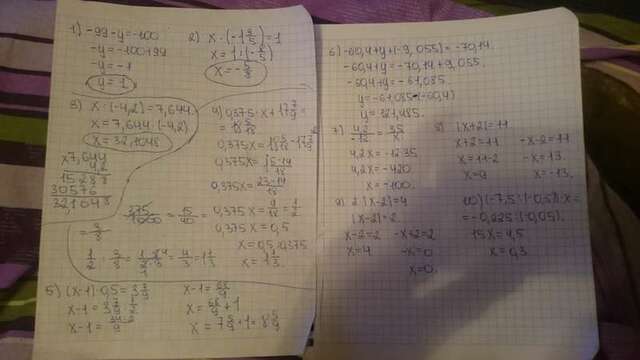 1) -99-y=-100
-y=-100+99
-y=-1
y=1
2) x·(-1 3/5)=1
x=1:(-8/5)
x=-5/8
3) x:(-4,2)=7,644.
x=7,644·(-4,2)
x=32,1048
×7,644
4,2
15288
30576
32,1048
4) 0,375·x+17 7/9=
=18 5/18
0,375x=18 5/18-17 7/9
0,375x=
0,375x=
0,375·x=9/18=1/2
0,375x=0,5
x=0,5:0,375
x=1 1/3.
375/1000=15/40=
=3/8
1/2:3/8=1·8/2·3=4/3=1 1/3
5) (x-1)·0,5=3 7/9
x-1=3 7/9:1/2
x-1=
x-1=68/9
x=68/9+1
x=7 5/9+1=8 5/9
6) -60,4+y+(-9,055)=-70,14.
-60,4+y=-70,14+9,055
-60,4+y=-61,085
y=-61,085-(-60,4)
y=121,485.
7) 4,2/-12=35/x
4,2x=-12·35
4,2x=-420
x=-100.
8) |x+2|=11
x+2=11 -x-2=11
x=11-2 -x=13.
x=9 x=-13.
9) 2·|x-2|=4
|x-2|=2
x-2=2 -x+2=2
x=4 -x=0
x=0.
10) (-7,5)·(-0,5)·x=
=-0,225·(-0,05).
15x=4,5
x=0,3.